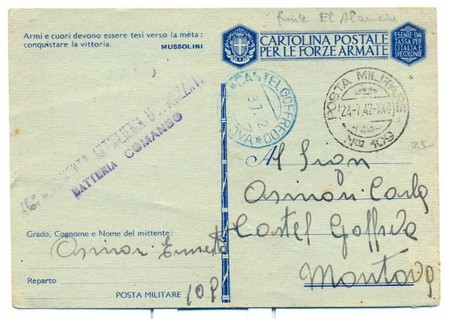 Armi e cuori devono essere tesi verso la mèta:
conquistare la vittoria. MUSSOLINI
fronte El Alamein
CARTOLINA POSTALE
PER LE FORZE ARMATE
ESENTE DA
TASSA PER
L'ITALIA
E COLONIE
CASTELGOFFREDO
POSTA MILITARE
24-7.42-XX
No 109
ARTIGLIERIA
BATTERIA COMANDO
25-
Al Sign
Osinori Carlo
Castel Goffredo
Mantova
Grado, Cognome e Nome del mittente:
Osinori Ernesto
Reparto
POSTA MILITARE 109